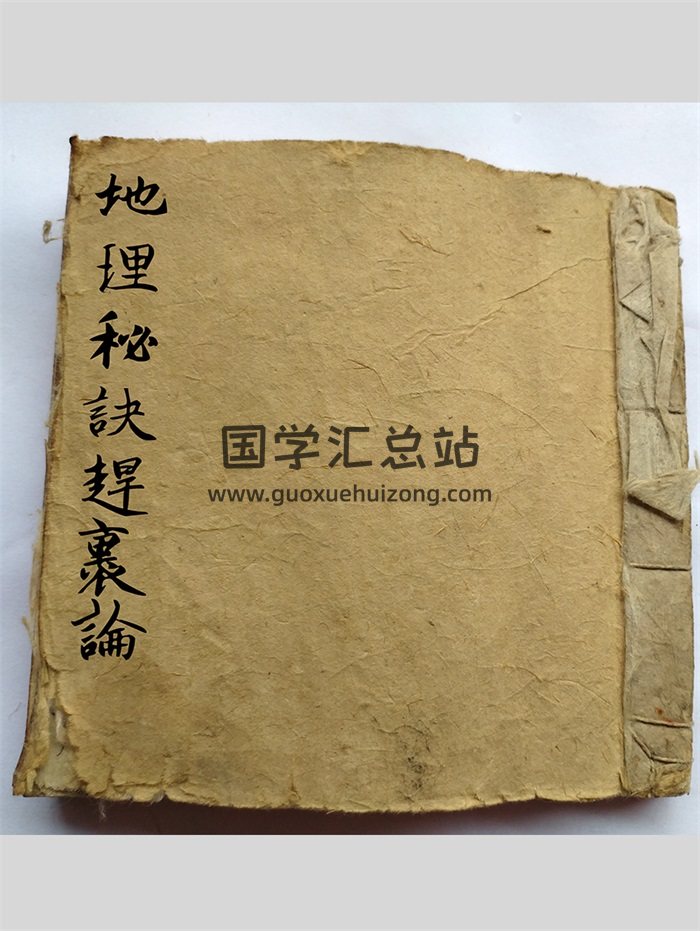 地理秘訣趕裹論
国学汇总站
www.guoxuehuizong.com